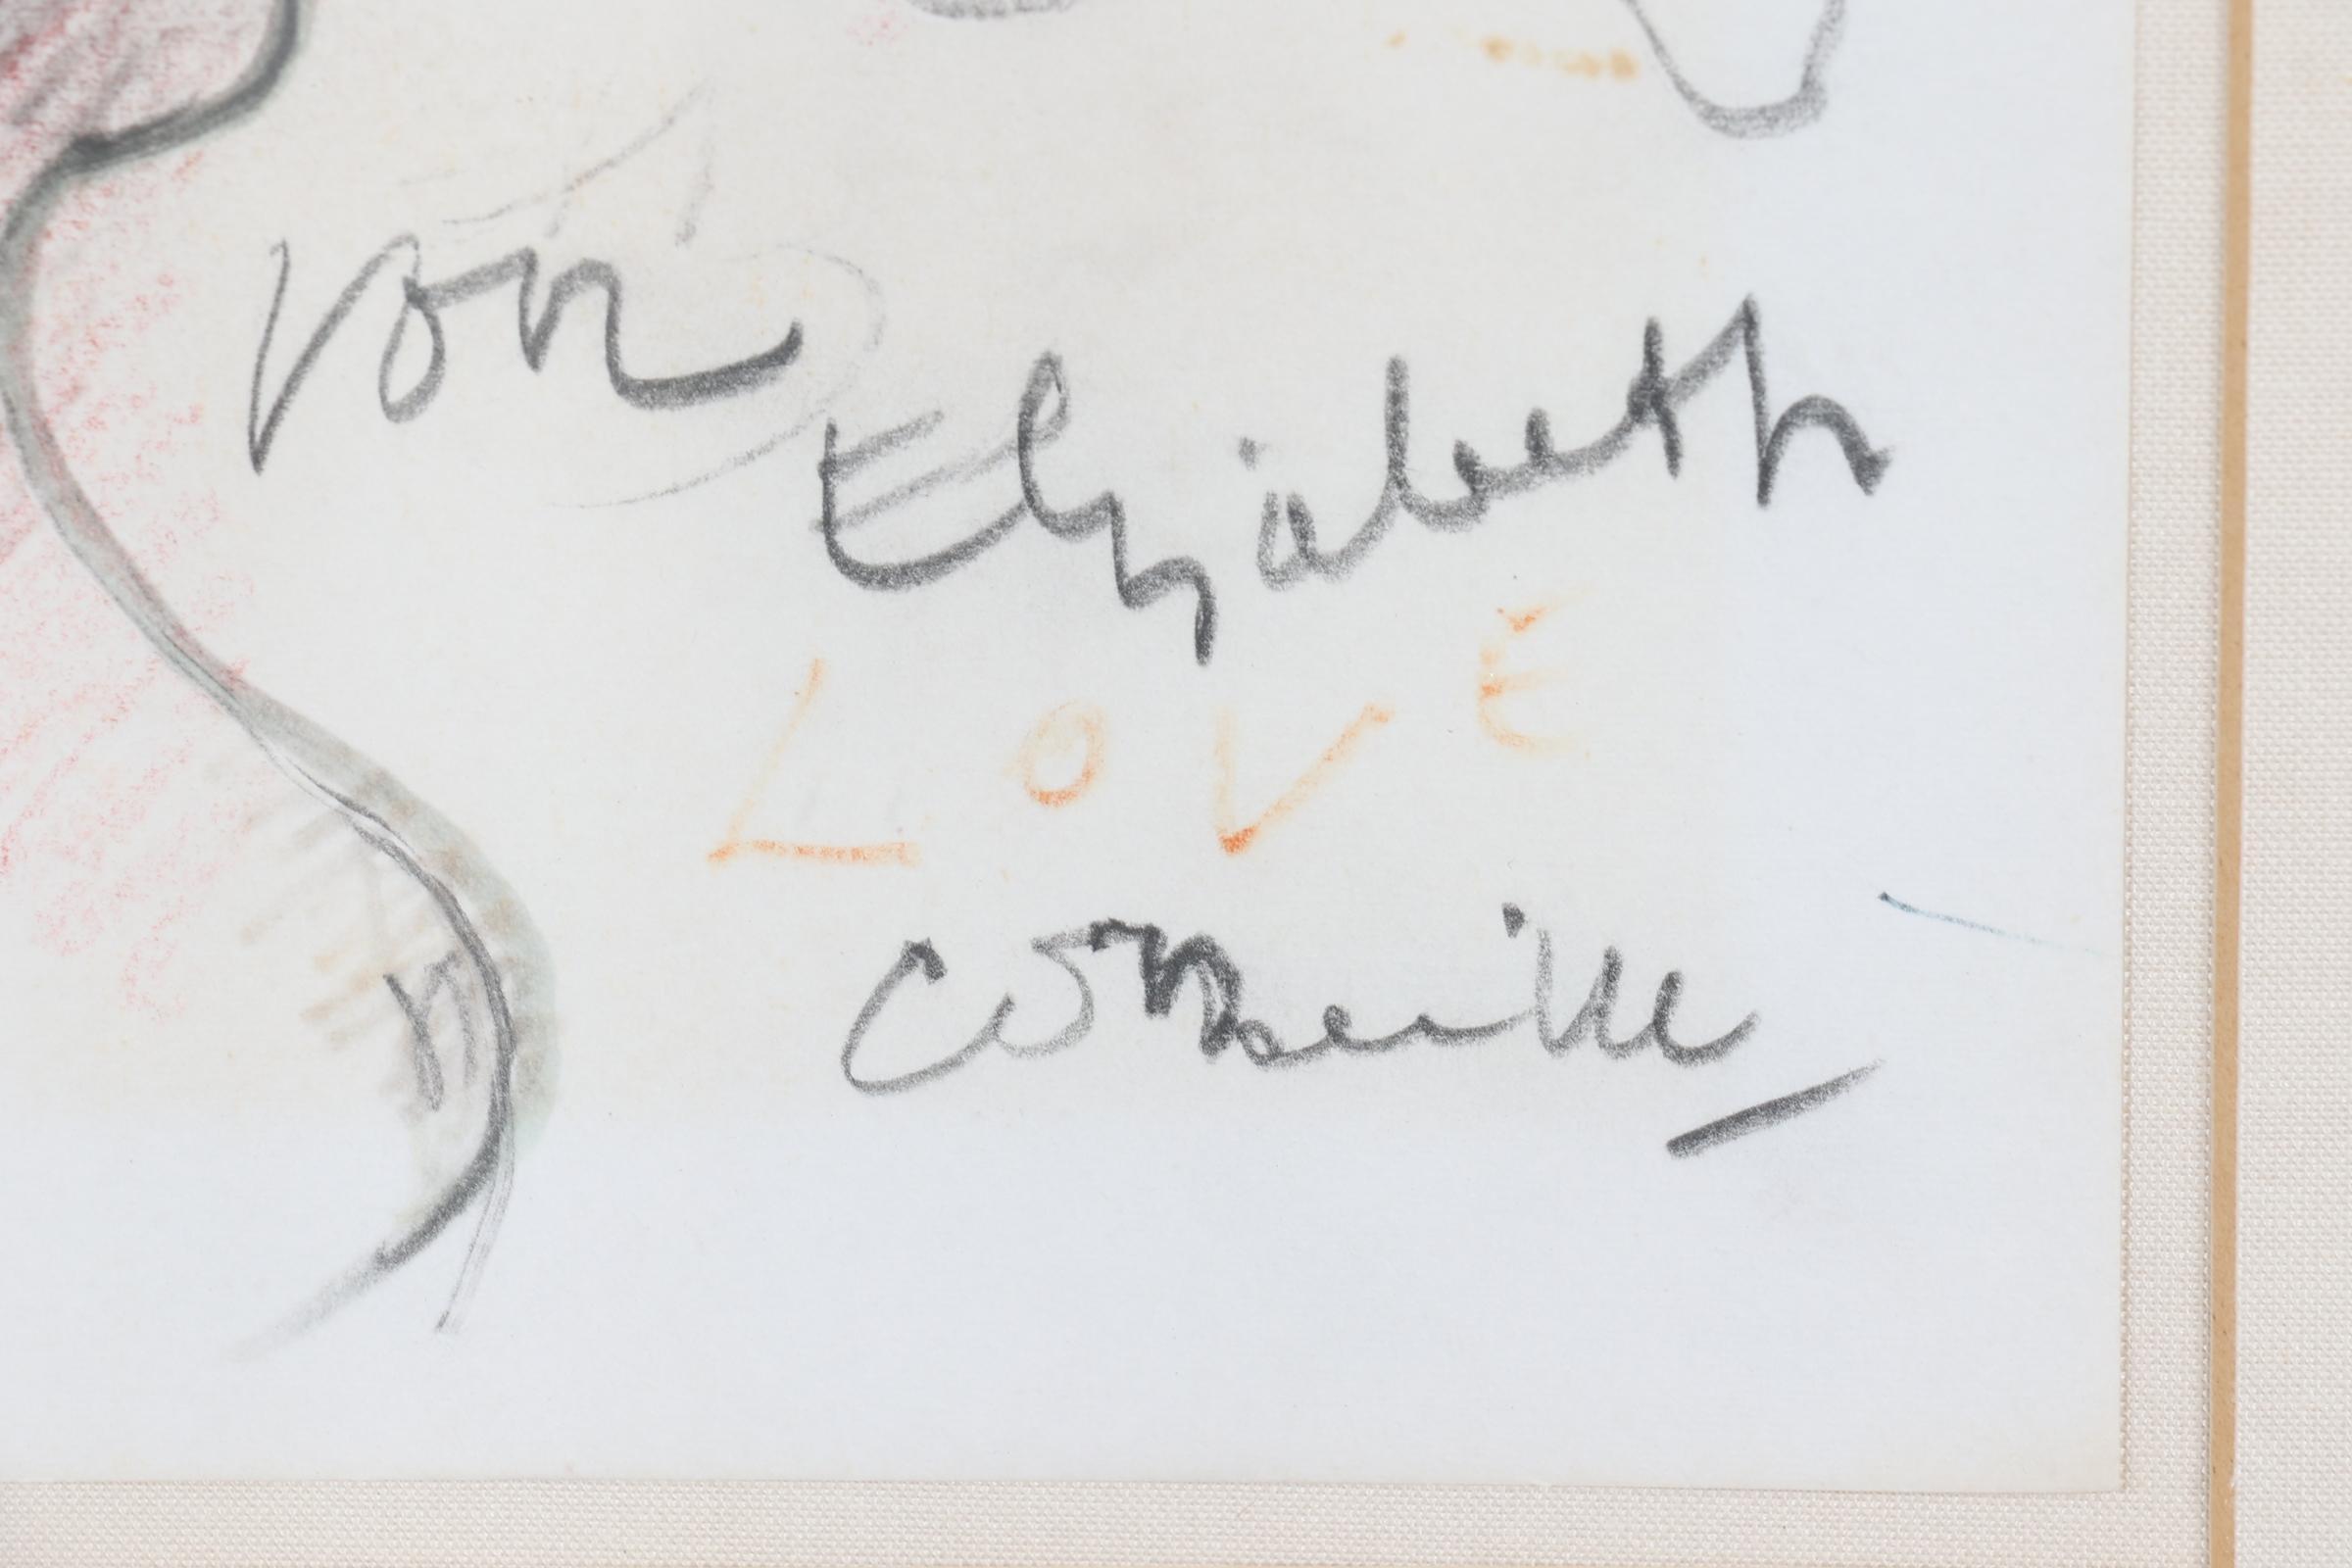 von
Elizabeth
LOVE
Corneille